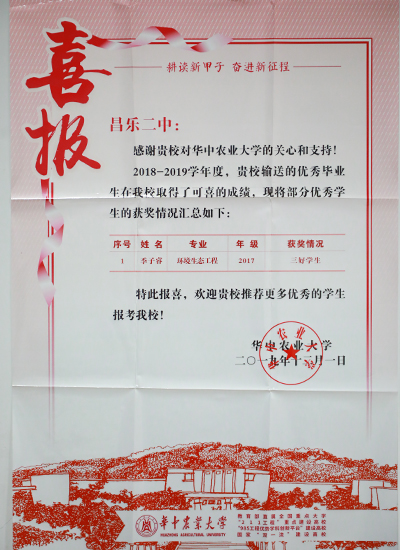 喜报
耕读新甲子 奋进新征程
昌乐二中:
感谢贵校对华中农业大学的关心和支持!
2018-2019学年度,贵校输送的优秀毕业
生在我校取得了可喜的成绩,现将部分优秀学
生的获奖情况汇总如下:
序号 姓名 专业 年级 获奖情况
1 李子睿 环境生态工程 2017 三好学生
特此报喜,欢迎贵校推荐更多优秀的学生
报考我校!
华中农业大学
二〇一九年十二月一日
华中农业大学
HUAZHONG AGRICULTURAL UNIVERSITY
教育部直属全国重点大学
"211工程"重点建设高校
"985工程优势学科创新平台"建设高校
国家"双一流"建设高校